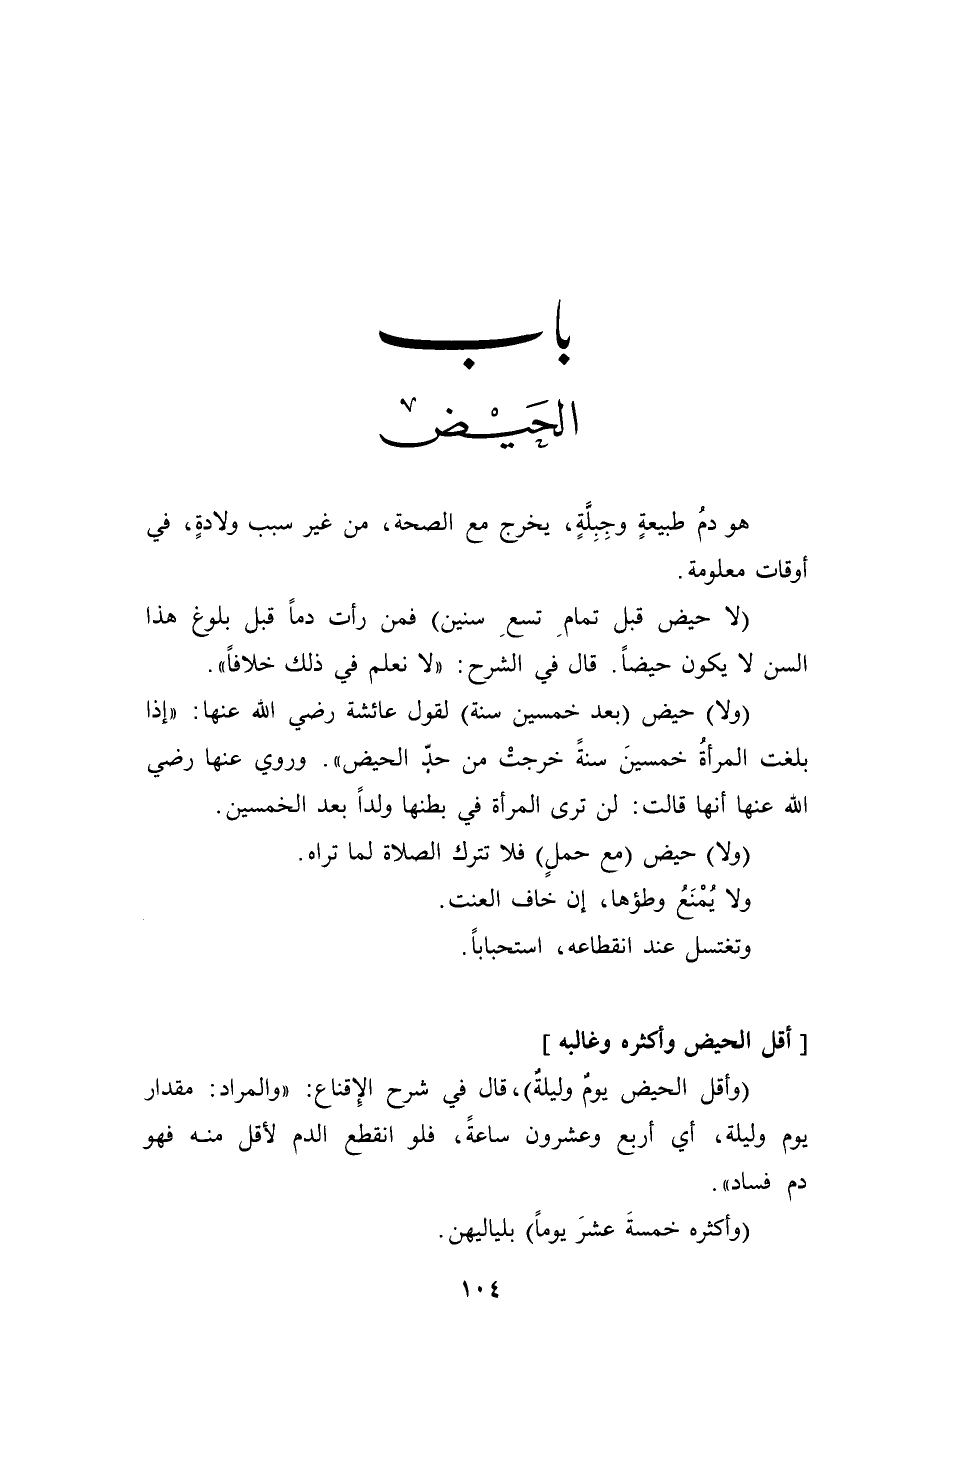 باب
الحَيْض
هو دمُ طبيعةٍ وجِبِلَّةٍ، يخرج مع الصحة، من غير سبب ولادةٍ، في
أوقات معلومة.
(لا حيض قبل تمامِ تسعِ سنين) فمن رأت دماً قبل بلوغ هذا
السن لا يكون حيضاً. قال في الشرح: «لا نعلم في ذلك خلافاً».
(ولا) حيض (بعد خمسين سنة) لقول عائشة رضي الله عنها: «إذا
بلغت المرأةُ خمسينَ سنةً خرجتْ من حدّ الحيض». وروي عنها رضي
الله عنها أنها قالت: لن ترى المرأة في بطنها ولداً بعد الخمسين.
(ولا) حيض (مع حملٍ) فلا تترك الصلاة لما تراه.
ولا يُمْنَعُ وطؤها، إن خاف العنت.
وتغتسل عند انقطاعه، استحباباً.
[أقل الحيض وأكثره وغالبه]
(وأقل الحيض يومٌ وليلةٌ)، قال في شرح الإقناع: «والمراد: مقدار
يوم وليلة، أي أربع وعشرون ساعةً، فلو انقطع الدم لأقل منه فهو
دم فساد».
(وأكثره خمسةَ عشرَ يوماً) بلياليهن.
١٠٤